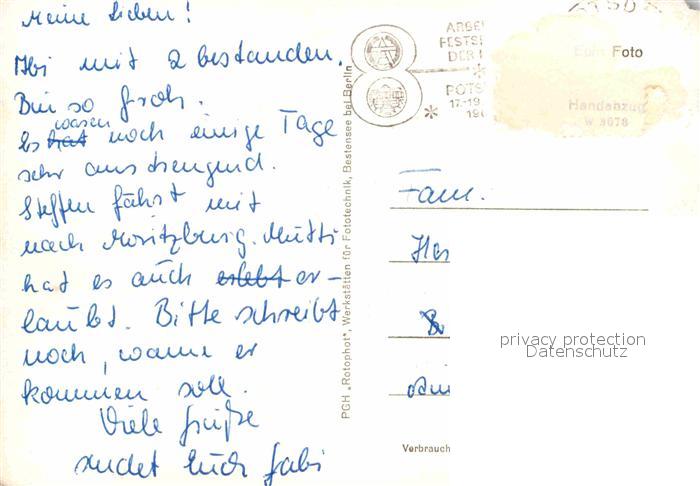 Meine Lieben!
Abi mit 2 bestanden.
Bin so froh.
Es hat waren noch einige Tage
sehr anstrengend.
Steffen fährt mit
nach Moritzburg. Mutti
hat es auch erlebt er-
laubt. Bitte schreibt
noch, wann er
kommen soll.
Viele Grüße
sendet Euch Gabi
PGH „Rotophot“, Werkstätten für Fototechnik, Bestensee bei Berlin
ARBEI
FESTSP
DER
POTS
17.-19
Echt Foto
Handabzug
W 3078
Fam.
privacy protection
Datenschutz
Verbrauch